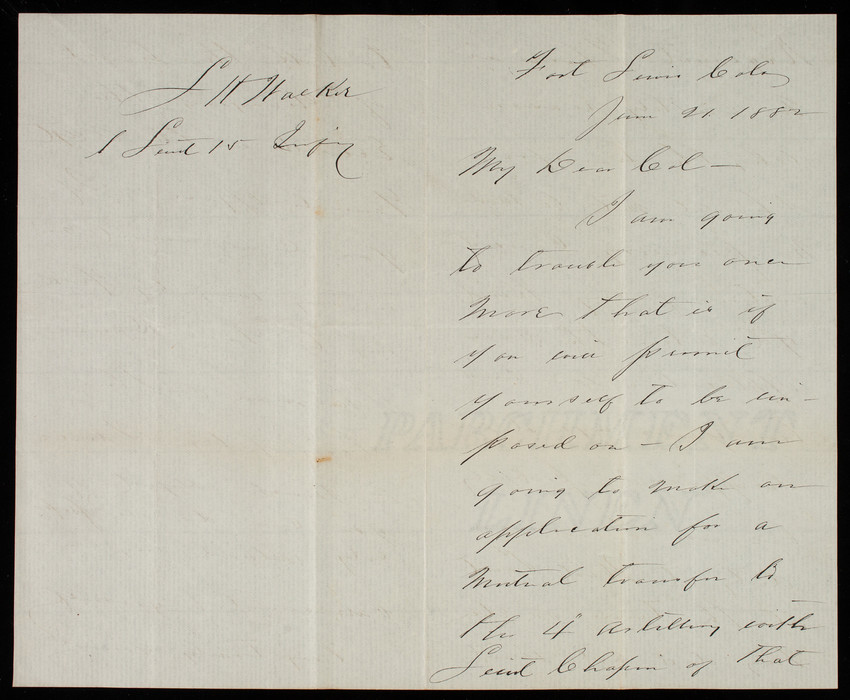 S H Walker
1 Lieut 15 Infy
Fort Lewis Colo
June 21. 1882
My Dear Col—
I am going
to trouble you once
more that is if
you will permit
yourself to be im-
posed on — I am
going to make an
application for a
mutual transfer to
the 4" artillery with
Lieut Chapin of that